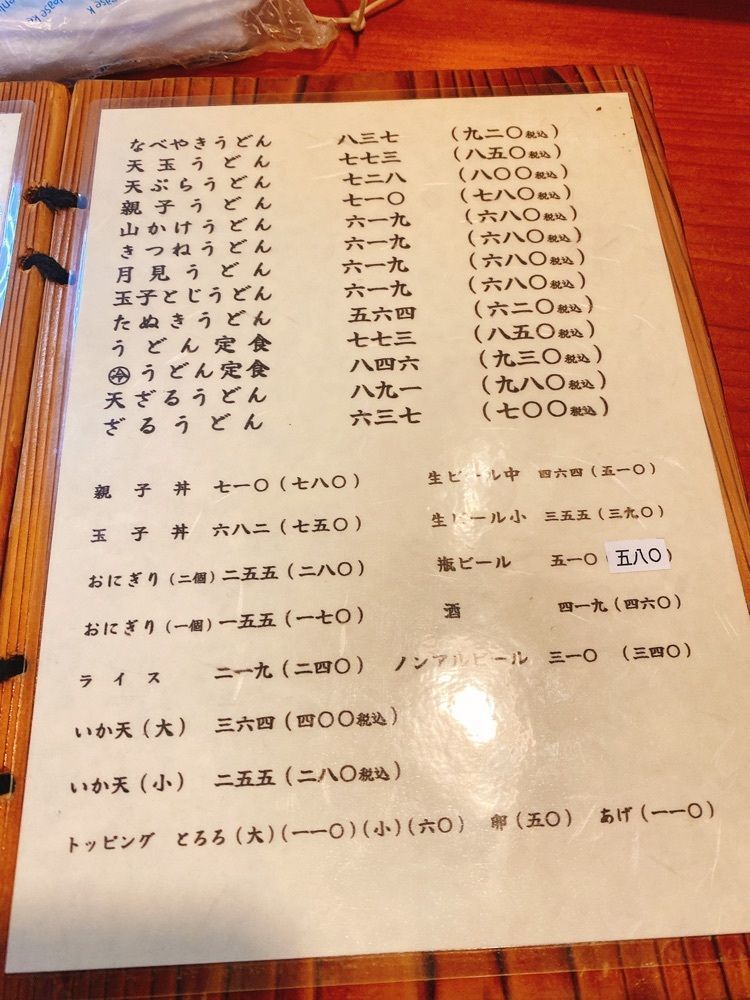 なべやきうどん 八三七 (九二〇税込)
天玉うどん 七七三 (八五〇税込)
天ぷらうどん 七二八 (八〇〇税込)
親子うどん 七一〇 (七八〇税込)
山かけうどん 六一九 (六八〇税込)
きつねうどん 六一九 (六八〇税込)
月見うどん 六一九 (六八〇税込)
玉子とじうどん 六一九 (六八〇税込)
たぬきうどん 五六四 (六二〇税込)
うどん定食 七七三 (八五〇税込)
㊍うどん定食 八四六 (九三〇税込)
天ざるうどん 八九一 (九八〇税込)
ざるうどん 六三七 (七〇〇税込)
親子丼 七一〇(七八〇) 生ビール中 四六四(五一〇)
玉子丼 六八二(七五〇) 生ビール小 三五五(三九〇)
おにぎり(二個)二五五(二八〇) 瓶ビール 五一〇(五八〇)
おにぎり(一個)一五五(一七〇) 酒 四一九(四六〇)
ライス 二一九(二四〇) ノンアルビール 三一〇 (三四〇)
いか天(大) 三六四(四〇〇税込)
いか天(小) 二五五(二八〇税込)
トッピング とろろ(大)(一一〇)(小)(六〇) 卵(五〇) あげ(一一〇)